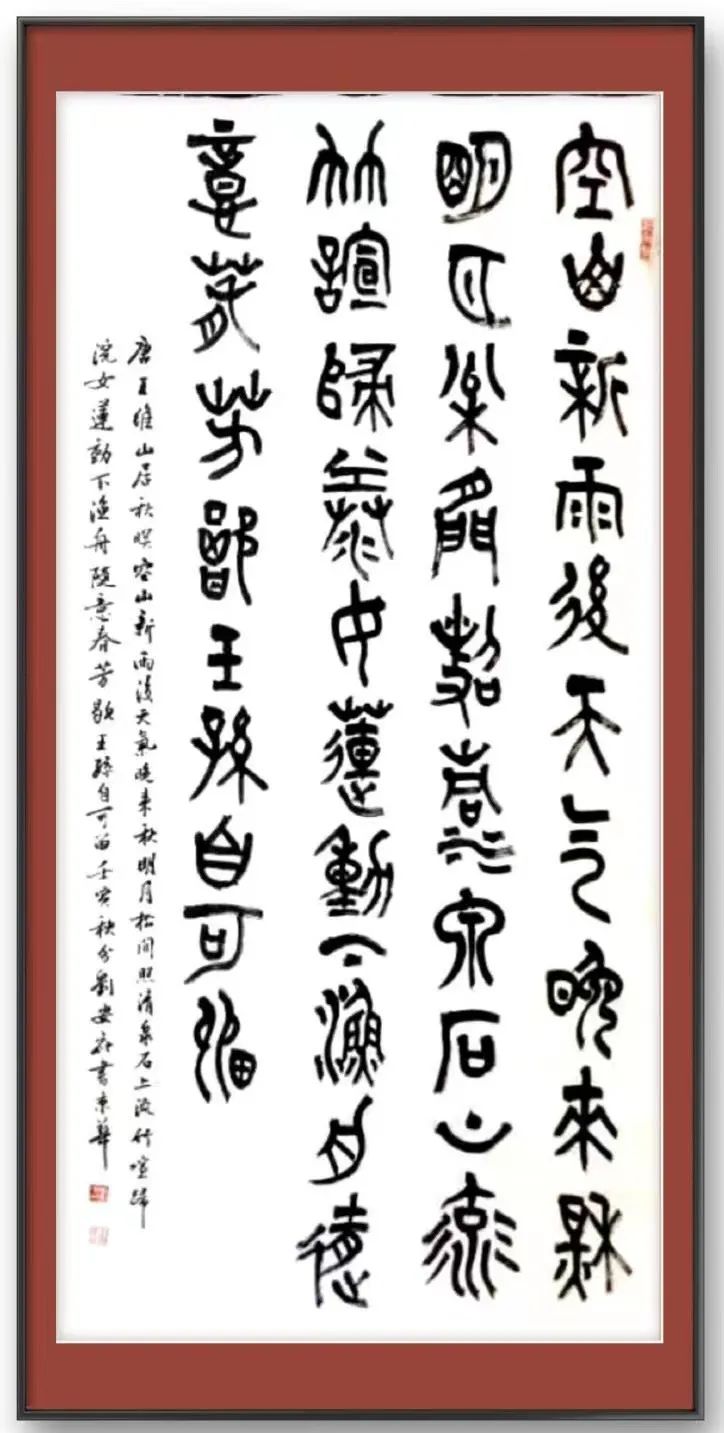 空山新雨後天气晚來秋
明月松間照清泉石上流
竹諠歸浣女蓮動下漁舟隨
意春芳歇王孫自可留
唐王維山居秋暝空山新雨後天氣晚来秋明月松間照清泉石上流竹喧歸
浣女蓮動下漁舟隨意春芳歇王孫自可留壬寅秋分劉安書京華